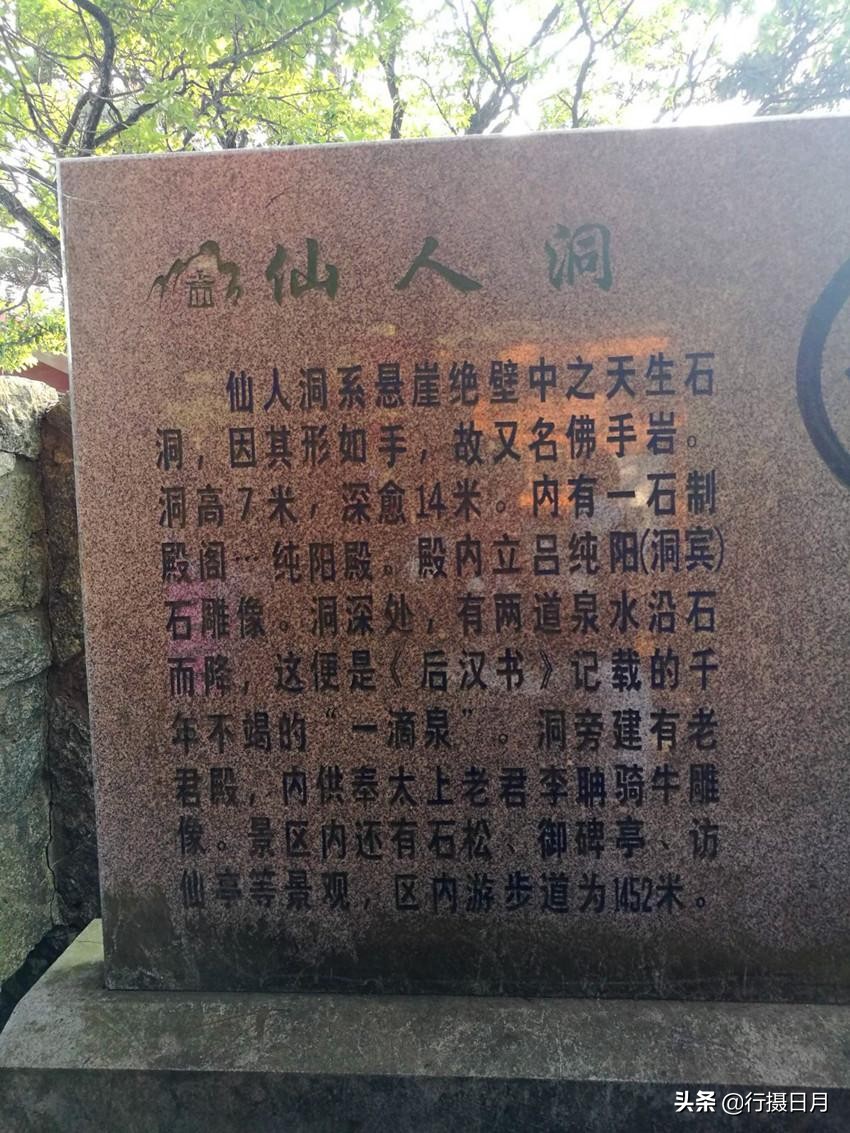 仙人洞
仙人洞系悬崖绝壁中之天生石
洞，因其形如手，故又名佛手岩。
洞高7米，深愈14米。内有一石制
殿阁…纯阳殿。殿内立吕纯阳(洞宾)
石雕像。洞深处，有两道泉水沿石
而降，这便是《后汉书》记载的千
年不竭的“一滴泉”。洞旁建有老
君殿，内供奉太上老君李聃骑牛雕
像。景区内还有石松、御碑亭、访
仙亭等景观，区内游步道为1452米。
头条 @行摄日月